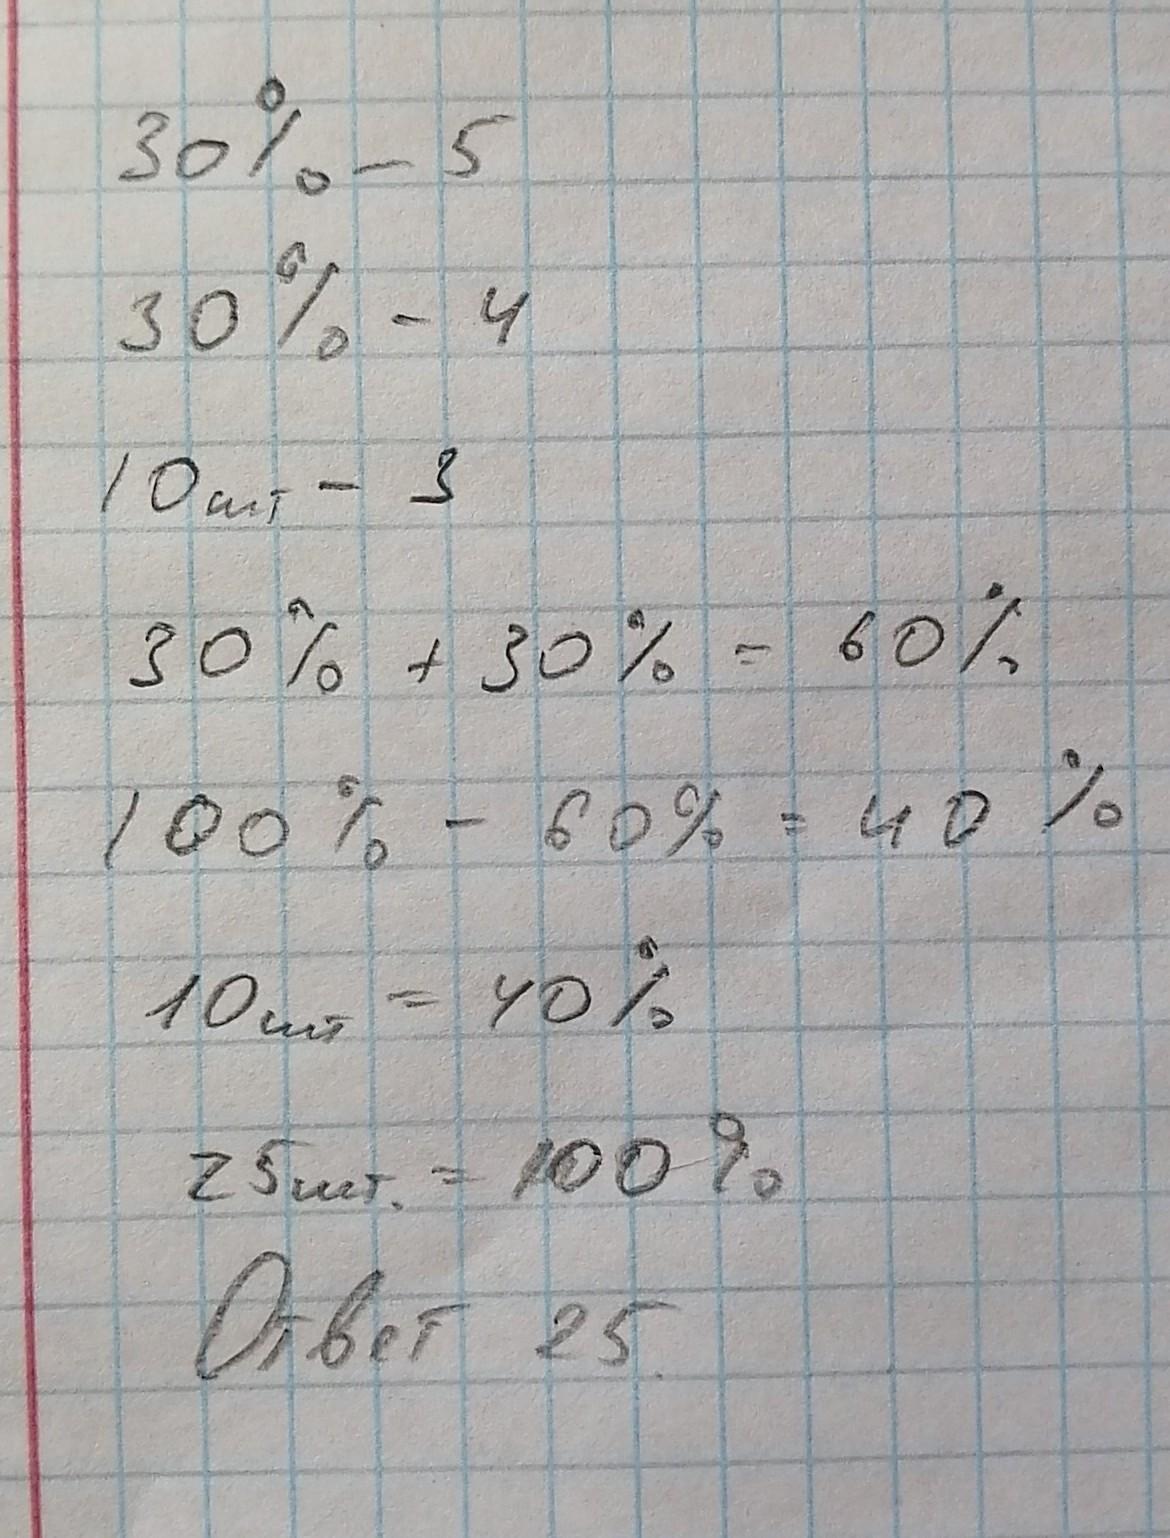 30% - 5
30% - 4
10шт - 3
30% + 30% = 60%
100% - 60% = 40%
10шт = 40%
25шт. = 100%
Ответ 25.